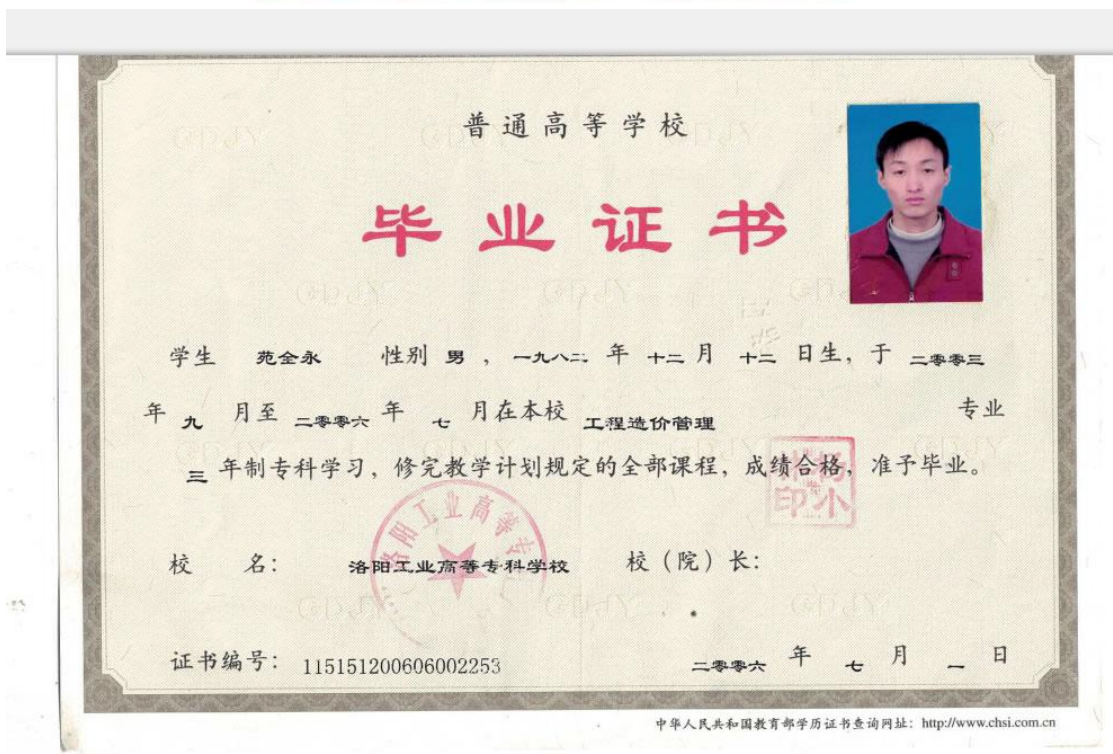 普通高等学校
毕业证书
学生 苑全永 性别 男 ，一九八二 年 十二 月 十二 日生，于 二零零三
年 九 月至 二零零六 年 七 月在本校 工程造价管理 专业
三 年制专科学习，修完教学计划规定的全部课程，成绩合格，准予毕业。
校 名： 洛阳工业高等专科学校 校（院）长：
证书编号： 115151200606002253 二零零六 年 七 月 一 日
中华人民共和国教育部学历证书查询网址：http://www.chsi.com.cn